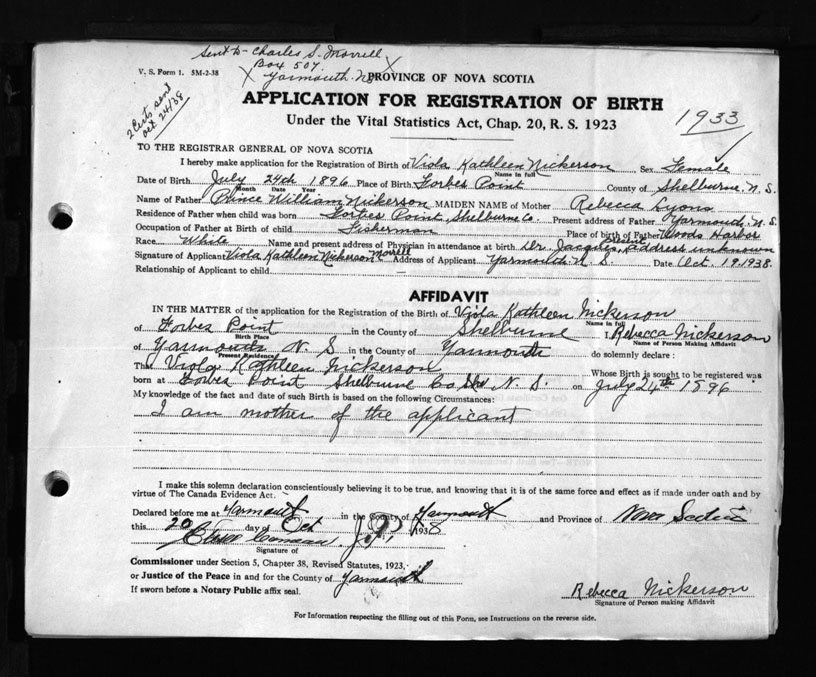 Sent to - Charles S. Morrell
Box 507
Yarmouth. N.S.
V. S. Form 1. 5M-2-38
2 Certs sent
Oct 24/38
PROVINCE OF NOVA SCOTIA
APPLICATION FOR REGISTRATION OF BIRTH
1933
Under the Vital Statistics Act, Chap. 20, R. S. 1923
TO THE REGISTRAR GENERAL OF NOVA SCOTIA
I hereby make application for the Registration of Birth of Viola Kathleen Nickerson Sex Female
Name in full
Date of Birth July 24th 1896 Place of Birth Forbes Point County of Shelburne, N.S.
Month Date Year
Name of Father Prince William Nickerson MAIDEN NAME of Mother Rebecca Lyons
Residence of Father when child was born Forbes Point, Shelburne Co. Present address of Father Yarmouth, N.S.
Occupation of Father at Birth of child Fisherman Place of birth of Father Woods Harbor
Race White Name and present address of Physician in attendance at birth Dr. Jacques, present address unknown
Signature of Applicant Viola Kathleen Nickerson Morrell Address of Applicant Yarmouth. N.S. Date Oct. 19. 1938.
Relationship of Applicant to child
AFFIDAVIT
IN THE MATTER of the application for the Registration of the Birth of Viola Kathleen Nickerson
Name in full
of Forbes Point in the County of Shelburne ; Rebecca Nickerson
Birth Place Name of Person Making Affidavit
of Yarmouth N.S in the County of Yarmouth do solemnly declare :
Present Residence
That Viola Kathleen Nickerson Whose Birth is sought to be registered was
born at Forbes Point Shelburne Co N. S. on July 24th 1896
My knowledge of the fact and date of such Birth is based on the following Circumstances:
I am mother of the applicant
I make this solemn declaration conscientiously believing it to be true, and knowing that it is of the same force and effect as if made under oath and by
virtue of The Canada Evidence Act.
Declared before me at Yarmouth in the County of Yarmouth and Province of Nova Scotia
this 20 day of Oct 1938
Comeau J.P.
Signature of
Commissioner under Section 5, Chapter 38, Revised Statutes, 1923,
or Justice of the Peace in and for the County of Yarmouth
If sworn before a Notary Public affix seal.
Rebecca Nickerson
Signature of Person making Affidavit
For Information respecting the filling out of this Form, see Instructions on the reverse side.